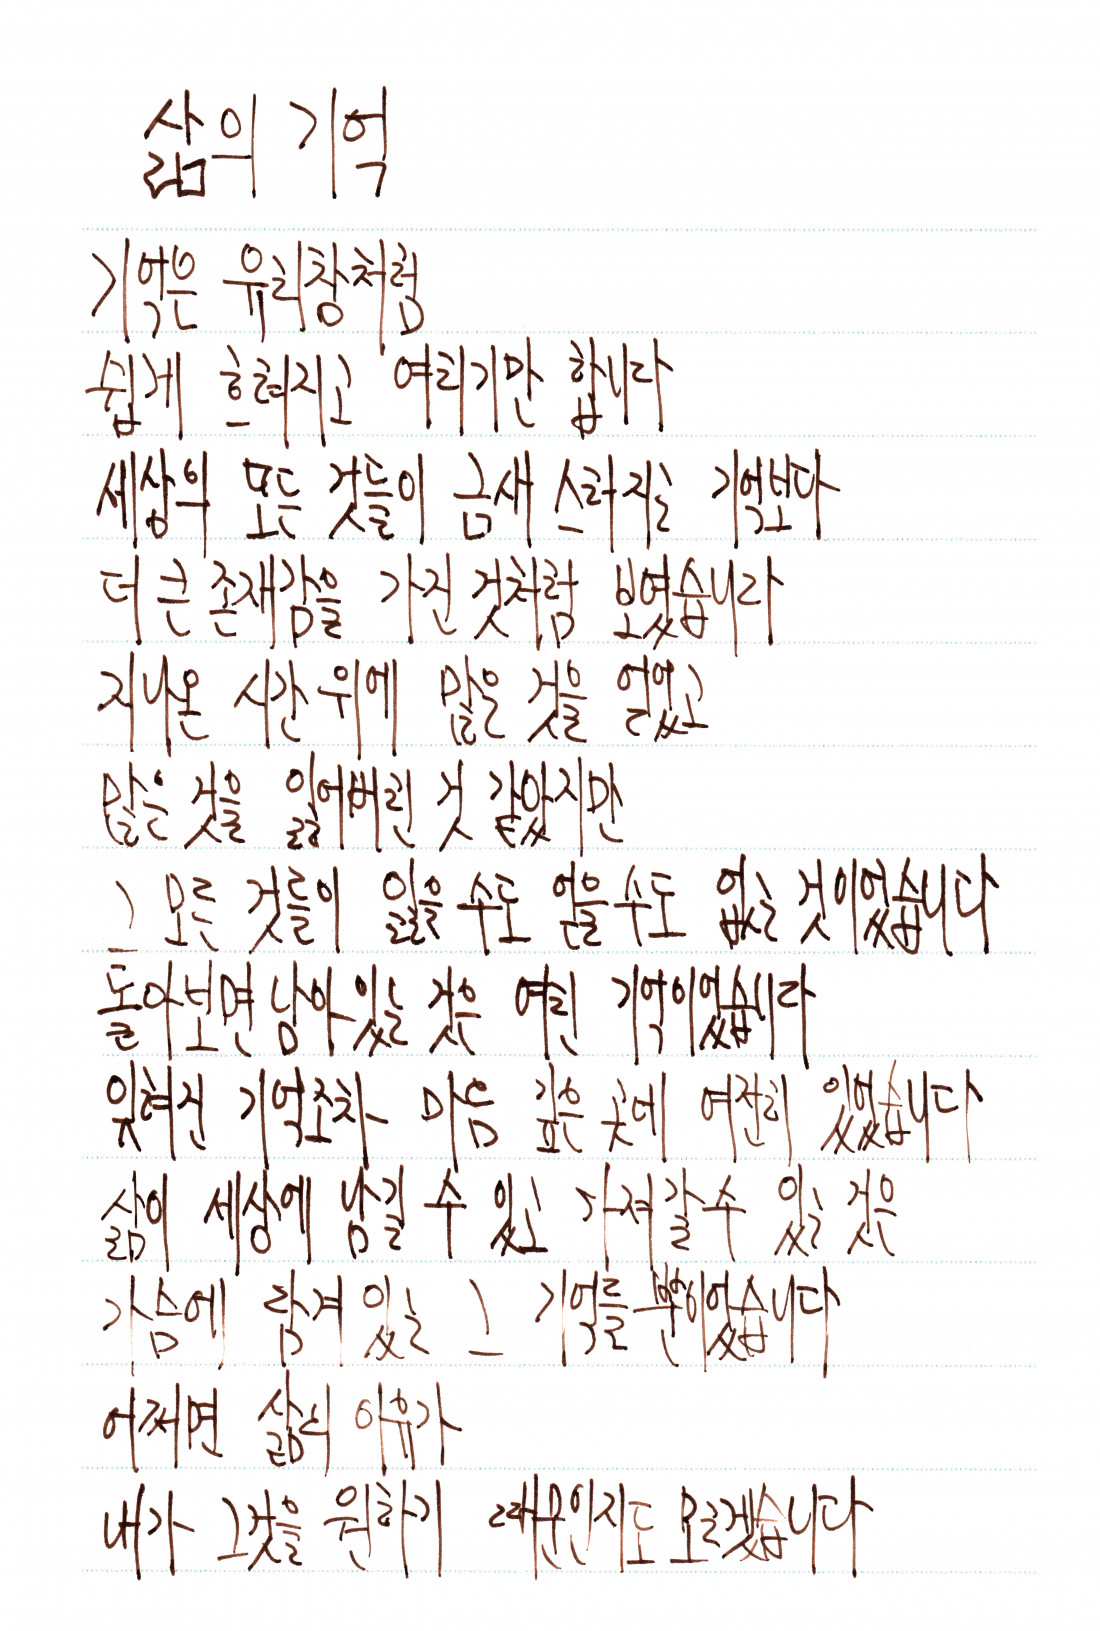 삶의 기억
기억은 유리창처럼
쉽게 흐려지고 여리기만 합니다
세상의 모든 것들이 금새 스러지는 기억보다
더 큰 존재감을 가진 것처럼 보였습니다
지나온 시간 위에 많은 것을 얻었고
많은 것을 잃어버린 것 같았지만
그 모든 것들이 잃을 수도 얻을 수도 없는 것이었습니다
돌아보면 남아있는 것은 여린 기억이었습니다
잊혀진 기억조차 마음 깊은 곳에 여전히 있었습니다
삶이 세상에 남길 수 있고 가져갈 수 있는 것은
가슴에 담겨 있는 그 기억들 뿐이었습니다
어쩌면 삶의 이유가
내가 그것을 원하기 때문인지도 모르겠습니다